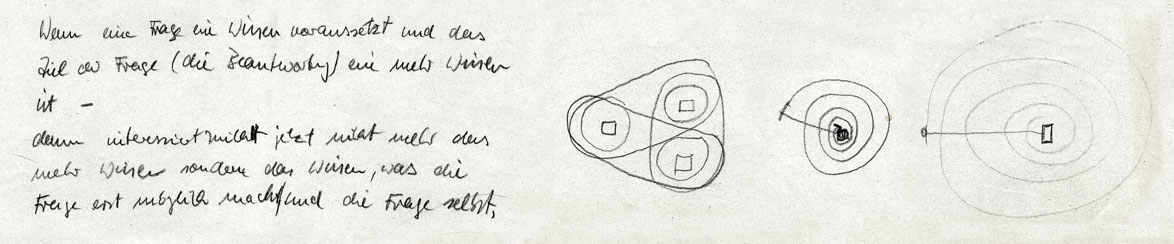 Wenn eine Frage ein Wissen voraussetzt und das
Ziel der Frage (die Beantwortung) ein mehr Wissen
ist –
dann interessiert mich jetzt nicht mehr das
mehr Wissen sondern das Wissen, was die
Frage erst möglich macht und die Frage selbst,